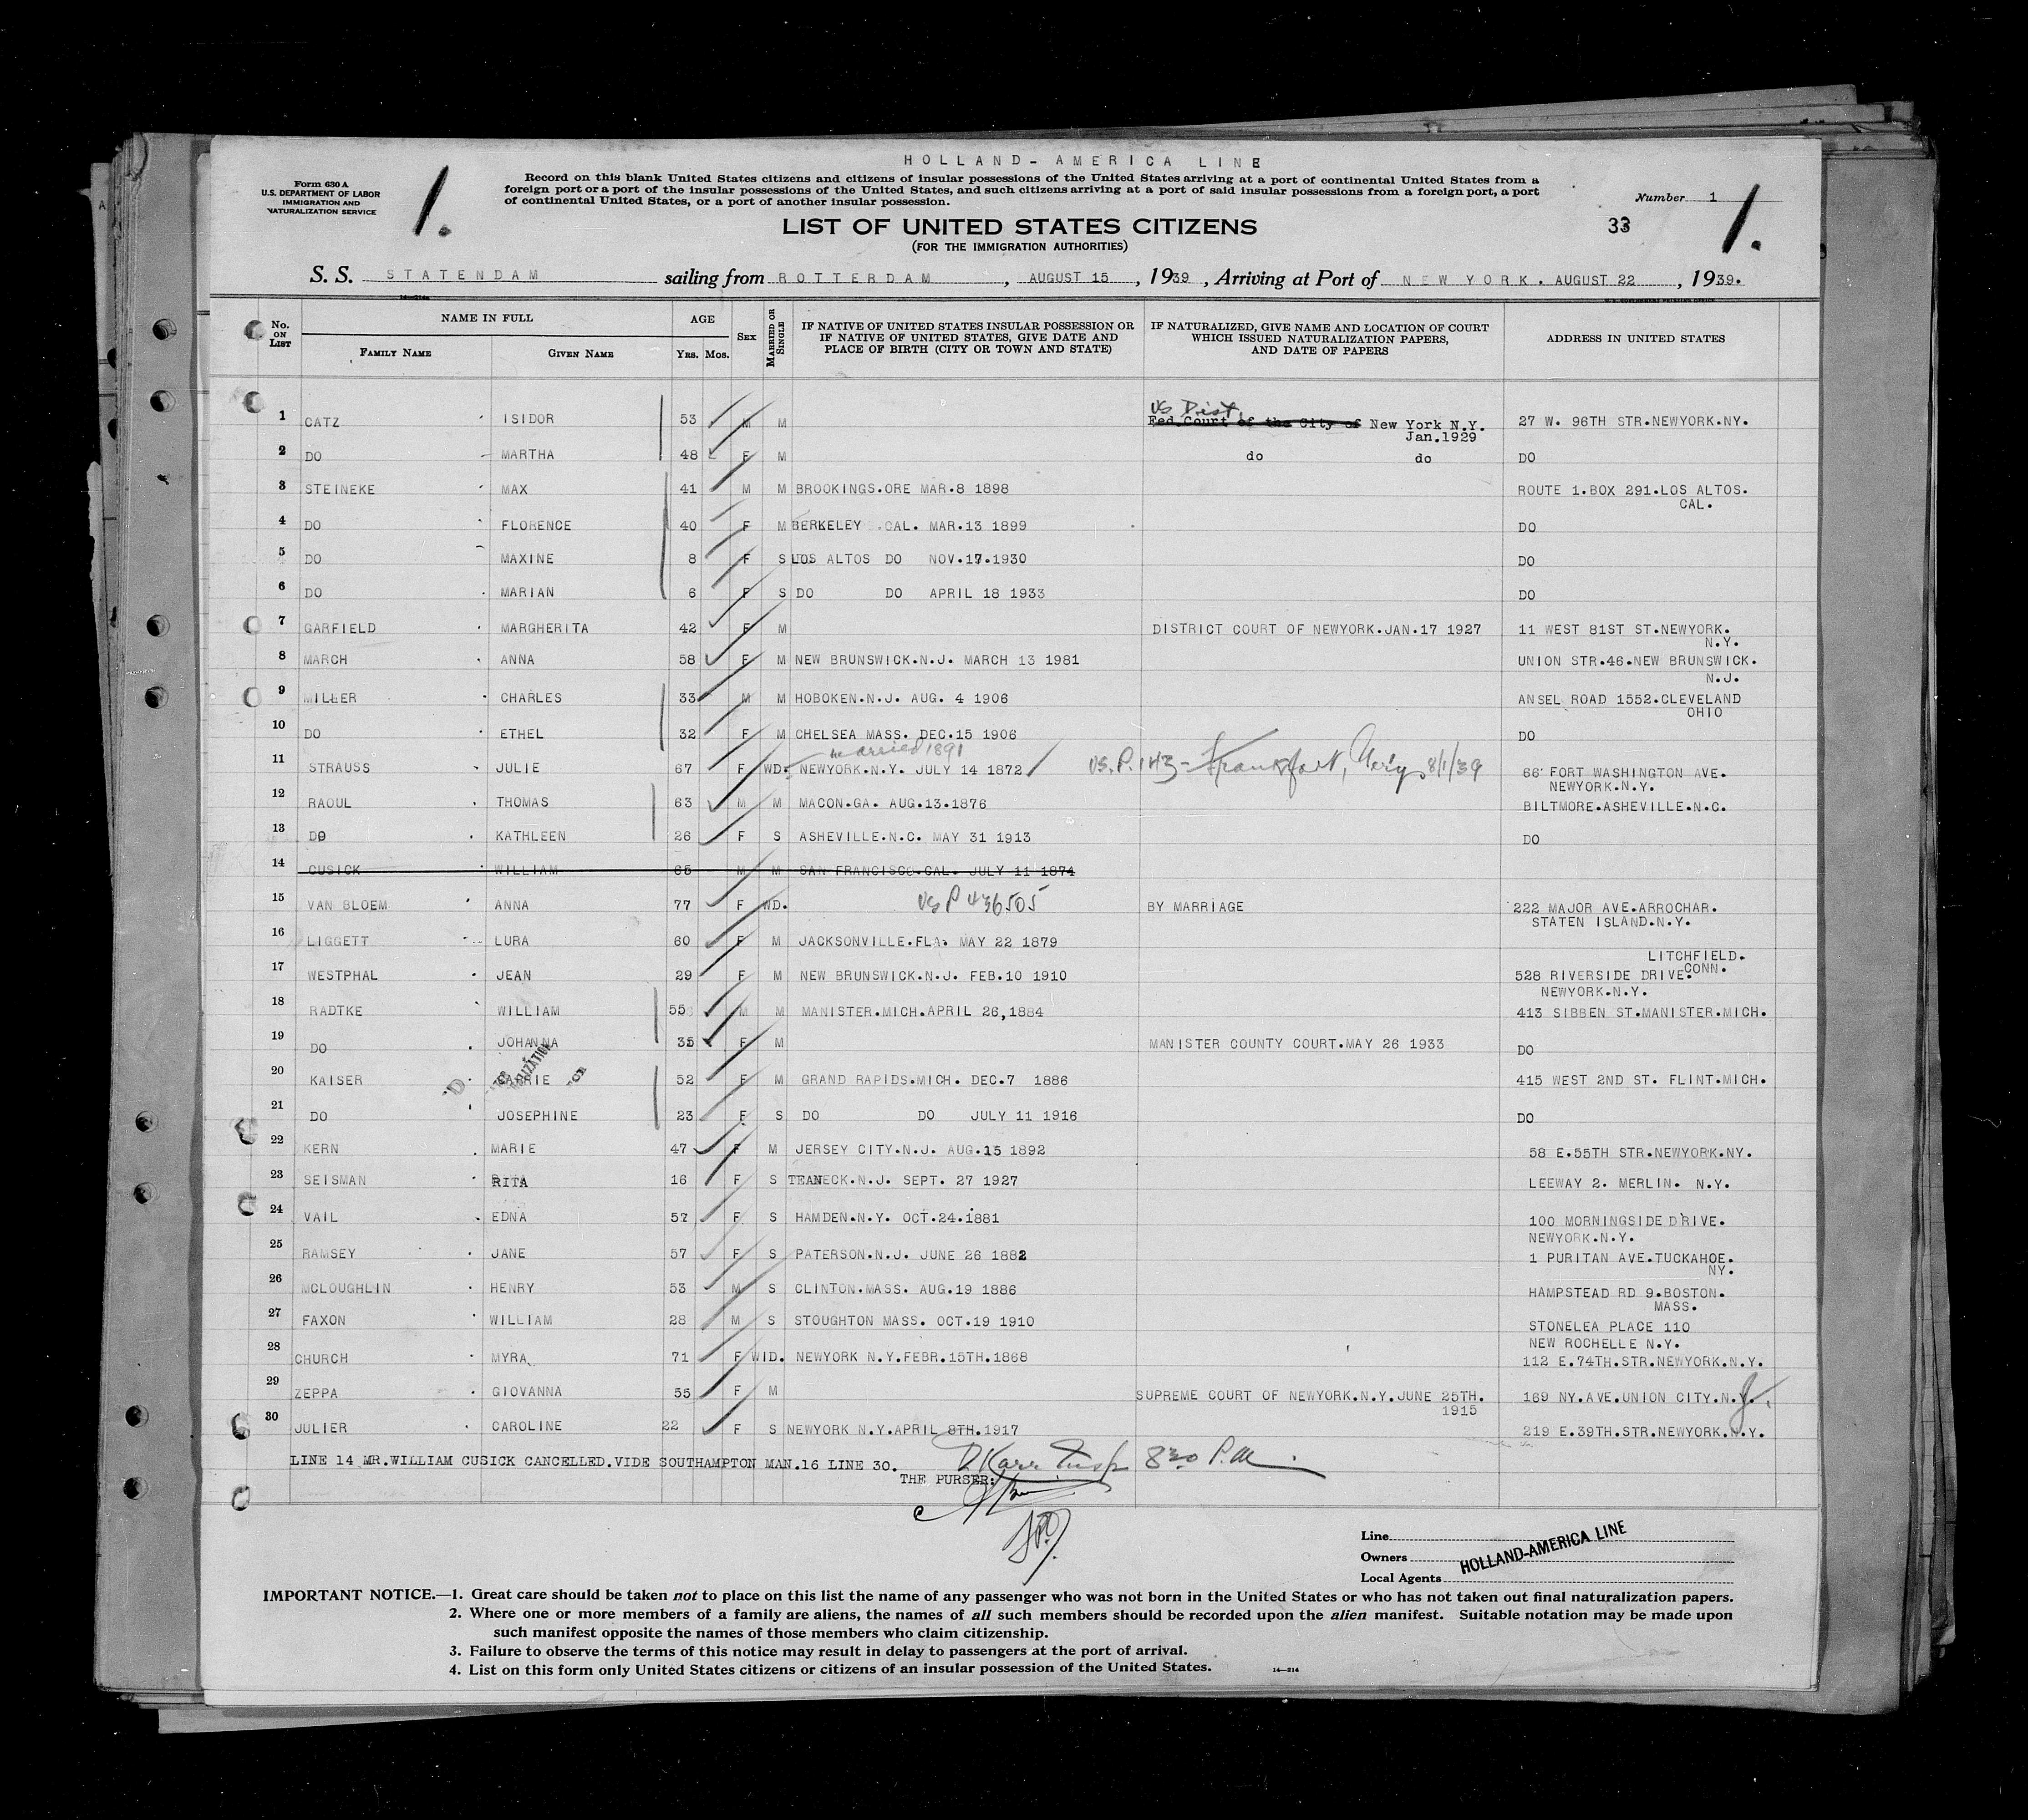 HOLLAND-AMERICA LINE
Form 630 A
U.S. DEPARTMENT OF LABOR
IMMIGRATION AND
NATURALIZATION SERVICE
1.
Record on this blank United States citizens and citizens of insular possessions of the United States arriving at a port of continental United States from a
foreign port or a port of the insular possessions of the United States, and such citizens arriving at a port of said insular possessions from a foreign port, a port
of continental United States, or a port of another insular possession.
Number 1
1.
LIST OF UNITED STATES CITIZENS
33
(FOR THE IMMIGRATION AUTHORITIES)
S. S. STATENDAM sailing from ROTTERDAM, AUGUST 15, 1939, Arriving at Port of NEW YORK. AUGUST 22, 1939.
No. ON LIST
NAME IN FULL
FAMILY NAME
GIVEN NAME
AGE
YRS. MOS.
SEX
MARRIED OR SINGLE
IF NATIVE OF UNITED STATES INSULAR POSSESSION OR
IF NATIVE OF UNITED STATES, GIVE DATE AND
PLACE OF BIRTH (CITY OR TOWN AND STATE)
IF NATURALIZED, GIVE NAME AND LOCATION OF COURT
WHICH ISSUED NATURALIZATION PAPERS,
AND DATE OF PAPERS
ADDRESS IN UNITED STATES
US Dist.
1 CATZ ISIDOR 53 M M Fed.Court of the City of New York N.Y. 27 W. 96TH STR.NEWYORK.NY.
Jan.1929
2 DO MARTHA 48 F M do do DO
3 STEINEKE MAX 41 M M BROOKINGS.ORE MAR.8 1898 ROUTE 1.BOX 291.LOS ALTOS.
CAL.
4 DO FLORENCE 40 F M BERKELEY .CAL. MAR.13 1899 DO
5 DO MAXINE 8 F S LOS ALTOS DO NOV.17.1930 DO
6 DO MARIAN 6 F S DO DO APRIL 18 1933 DO
7 GARFIELD MARGHERITA 42 F M DISTRICT COURT OF NEWYORK.JAN.17 1927 11 WEST 81ST ST.NEWYORK.
N.Y.
8 MARCH ANNA 58 F M NEW BRUNSWICK.N.J. MARCH 13 1981 UNION STR.46.NEW BRUNSWICK.
N.J.
9 MILLER CHARLES 33 M M HOBOKEN.N.J. AUG. 4 1906 ANSEL ROAD 1552.CLEVELAND
OHIO
10 DO ETHEL 32 F M CHELSEA MASS. DEC.15 1906 DO
married 1891
11 STRAUSS JULIE 67 F WD. NEWYORK.N.Y. JULY 14 1872 US.P. 143- Frankfort, Ger'y, 8/1/39 66 FORT WASHINGTON AVE.
NEWYORK.N.Y.
12 RAOUL THOMAS 63 M M MACON.GA. AUG.13.1876 BILTMORE.ASHEVILLE.N.C.
13 DO KATHLEEN 26 F S ASHEVILLE.N.C. MAY 31 1913 DO
14 CUSICK WILLIAM 65 M M SAN FRANCISCO.CAL. JULY 11 1874
15 VAN BLOEM ANNA 77 F WD. US P 436505 BY MARRIAGE 222 MAJOR AVE.ARROCHAR.
STATEN ISLAND.N.Y.
16 LIGGETT LURA 60 F M JACKSONVILLE.FLA. MAY 22 1879
LITCHFIELD.
CONN.
17 WESTPHAL JEAN 29 F M NEW BRUNSWICK.N.J. FEB.10 1910 528 RIVERSIDE DRIVE.
NEWYORK.N.Y.
18 RADTKE WILLIAM 55 M M MANISTER.MICH.APRIL 26,1884 413 SIBBEN ST.MANISTER.MICH.
19 DO JOHANNA 35 F M MANISTER COUNTY COURT.MAY 26 1933 DO
20 KAISER CARRIE 52 F M GRAND RAPIDS.MICH. DEC.7 1886 415 WEST 2ND ST. FLINT.MICH.
21 DO JOSEPHINE 23 F S DO DO JULY 11 1916 DO
22 KERN MARIE 47 F M JERSEY CITY.N.J. AUG.15 1892 58 E.55TH STR.NEWYORK.NY.
23 SEISMAN RITA 16 F S TEANECK.N.J. SEPT. 27 1927 LEEWAY 2. MERLIN. N.Y.
24 VAIL EDNA 57 F S HAMDEN.N.Y. OCT.24.1881 100 MORNINGSIDE DRIVE.
NEWYORK.N.Y.
25 RAMSEY JANE 57 F S PATERSON.N.J. JUNE 26 1882 1 PURITAN AVE.TUCKAHOE.
NY.
26 MCLOUGHLIN HENRY 53 M S CLINTON.MASS. AUG.19 1886 HAMPSTEAD RD 9.BOSTON.
MASS.
27 FAXON WILLIAM 28 M S STOUGHTON MASS. OCT.19 1910 STONELEA PLACE 110
NEW ROCHELLE N.Y.
28 CHURCH MYRA 71 F WID. NEWYORK N.Y.FEBR.15TH.1868 112 E.74TH.STR.NEWYORK.N.Y.
29 ZEPPA GIOVANNA 55 F M SUPREME COURT OF NEWYORK.N.Y.JUNE 25TH. 169 NY.AVE.UNION CITY.N.J.
1915
30 JULIER CAROLINE 22 F S NEWYORK N.Y.APRIL 8TH.1917 219 E.39TH.STR.NEWYORK.N.Y.
LINE 14 MR.WILLIAM CUSICK CANCELLED.VIDE SOUTHAMPTON MAN.16 LINE 30.
8 30 P.M.
THE PURSER:
Line
Owners
Local Agents
HOLLAND-AMERICA LINE
IMPORTANT NOTICE.—1. Great care should be taken not to place on this list the name of any passenger who was not born in the United States or who has not taken out final naturalization papers.
2. Where one or more members of a family are aliens, the names of all such members should be recorded upon the alien manifest. Suitable notation may be made upon
such manifest opposite the names of those members who claim citizenship.
3. Failure to observe the terms of this notice may result in delay to passengers at the port of arrival.
4. List on this form only United States citizens or citizens of an insular possession of the United States.
14—214